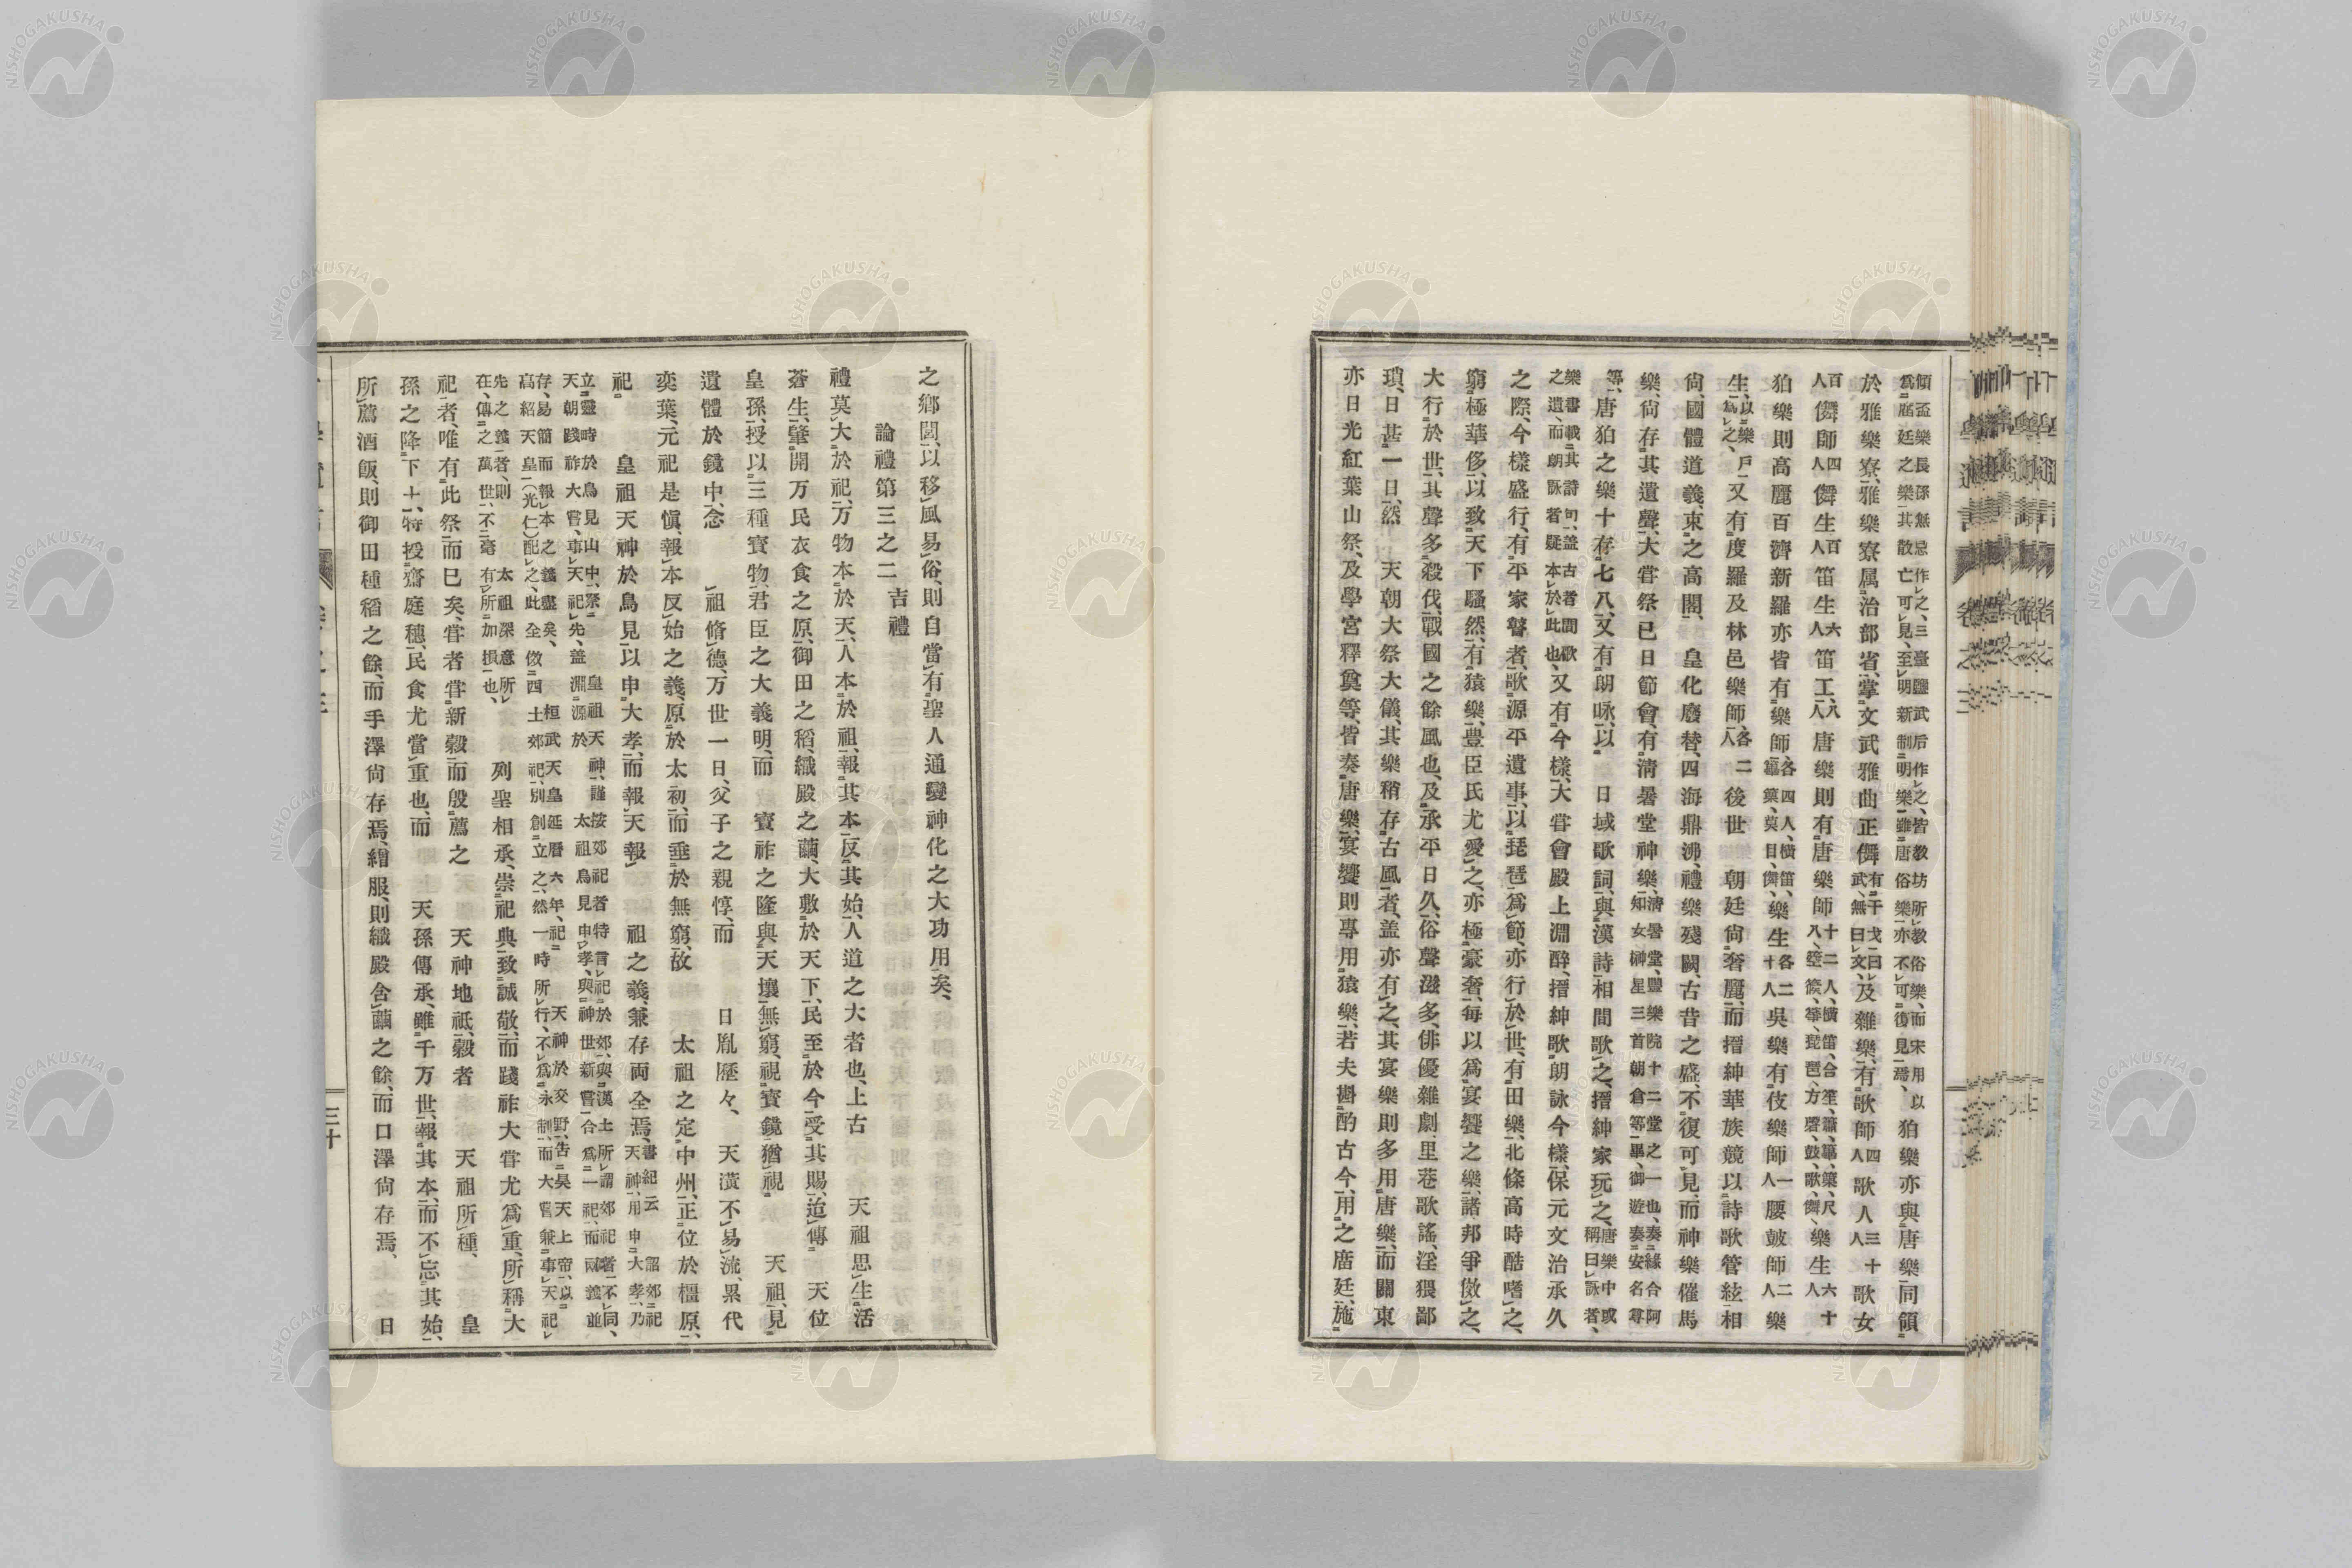 傾盃樂長孫無忌作之、三臺鹽武后作之、皆教坊所教俗樂、而宋用以
爲庭廷之樂其散亡可見、至明新制明樂雖唐俗樂亦不可復見焉、狛樂亦與唐樂同領
於雅樂寮、雅樂寮属治部省、掌文武雅曲正儛有干戈曰武、無曰文、及雜樂、有歌師四人歌人三十人歌女
百人儛師四人儛生百人笛生六人笛工八人唐樂則有唐樂師十二人、橫笛、合笙、簫、篳篥、尺八、箜篌、箏、琵琶、方磬、鼓、歌、儛、樂生六十人
狛樂則高麗百濟新羅亦皆有樂師各四人、橫笛、篳篥、莫目、儛、樂生各二十人吳樂有伎樂師一人腰鼓師二人樂
生、以樂戶爲之、又有度羅及林邑樂師、各二人後世 朝廷尙奢麗、而搢紳華族競以詩歌管絃相
尙、國體道義、束之高閣、 皇化廢替、四海鼎沸、禮樂殘闕、古昔之盛、不復可見、而神樂催馬
樂、尙存其遺聲、大甞祭已日節會、有淸暑堂神樂、淸暑堂、豐樂院十二堂之一也、奏緣合阿知女、榊星三首朝倉等畢、御遊奏安名尊
等、唐狛之樂十存七八、又有朗咏、以 日域歌詞、與漢詩相間歌之、搢紳家玩之、唐樂中或稱曰詠者、
樂書載其詩句、盖古者間歌之遺而朗詠者疑本於此也、又有今樣、大甞會殿上淵醉、搢紳歌朗詠今樣、保元文治承久
之際、今樣盛行、有平家瞽者、歌源平遺事、以琵琶爲節、亦行於世、有田樂、北條高時酷嗜之、
窮極華侈、以致天下騷然、有猿樂、豊臣氏尤愛之、亦極豪奢、每以爲宴饗之樂、諸邦爭倣之、
大行於世、其聲多殺伐、戰國之餘風也、及承平日久、俗聲滋多、俳優雜劇、里巷歌謠、淫猥鄙
瑣、日甚一日、然 天朝大祭大儀、其樂稍存古風者、盖亦有之、其宴樂則多用唐樂、而關東
亦日光紅葉山祭、及學宮釋奠等、皆奏唐樂、宴饗則專用猿樂、若夫斟酌古今、用之廣廷、施
之鄕閭、以移風易俗、則自當有聖人通變神化之大功用矣、
論禮第三之二 吉禮
禮莫大於祀、万物本於天、人本於祖、報其本反其始、人道之大者也、上古 天祖思生活
蒼生、肇開万民衣食之原、御田之稻、織殿之繭、大敷於天下、民至於今受其賜、迨傳 天位
皇孫、授以三種寳物、君臣之大義明、而 寳祚之隆與天壤無窮、視寳鏡猶視 天祖、見
遺體於鏡中、念 祖脩德、万世一日、父子之親惇、而 日胤歷々、 天潢不易流、累代
奕葉、元祀是愼、報本反始之義、原於太初、而垂於無窮、故 太祖之定中州、正位於橿原、
祀 皇祖天神於鳥見、以申大孝、而報天報 祖之義、兼存両全焉、書紀云 詔郊祀天神、用申大孝、乃
立靈畤於鳥見山中、祭 皇祖天神、謹按郊祀者特言祀於郊、與漢土所謂郊祀者不同、
天朝踐祚大甞、事天祀先、盖淵源於 太祖鳥見申孝、與神世新甞合爲一祀、而兩義並
存、易簡而報本之義盡矣、 桓武天皇延曆六年、祀 天神於交野、吿昊天上帝、以
高紹天皇(光仁)配之、此全倣四土郊祀、別創立之、然一時所行、不爲永制、而大甞兼事天祀
先之義者、則 太祖深意所在、傳之萬世、不毫有所加損也、 列聖相承、崇祀典、致誠敬、而踐祚大甞尤爲重、所稱大
祀者、唯有此祭而已矣、甞者甞新穀、而殷薦之 天神地祇、穀者 天祖所種、 皇
孫之降下土、特授齋庭穗、民食尤當重也、而 天孫傳承、雖千万世、報其本、而不忘其始、
所薦酒飯、則御田種稻之餘、而手澤尙存焉、繒服、則織殿含繭之餘、而口澤尙存焉、 日
三十